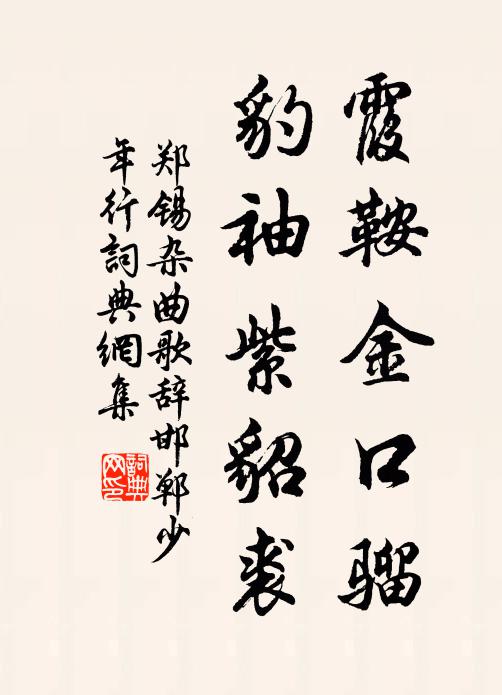 霞鞍金口骝
豹袖紫貂裘
郑锡杂曲歌辞邯郸少
年行词典網集
詞典
网印